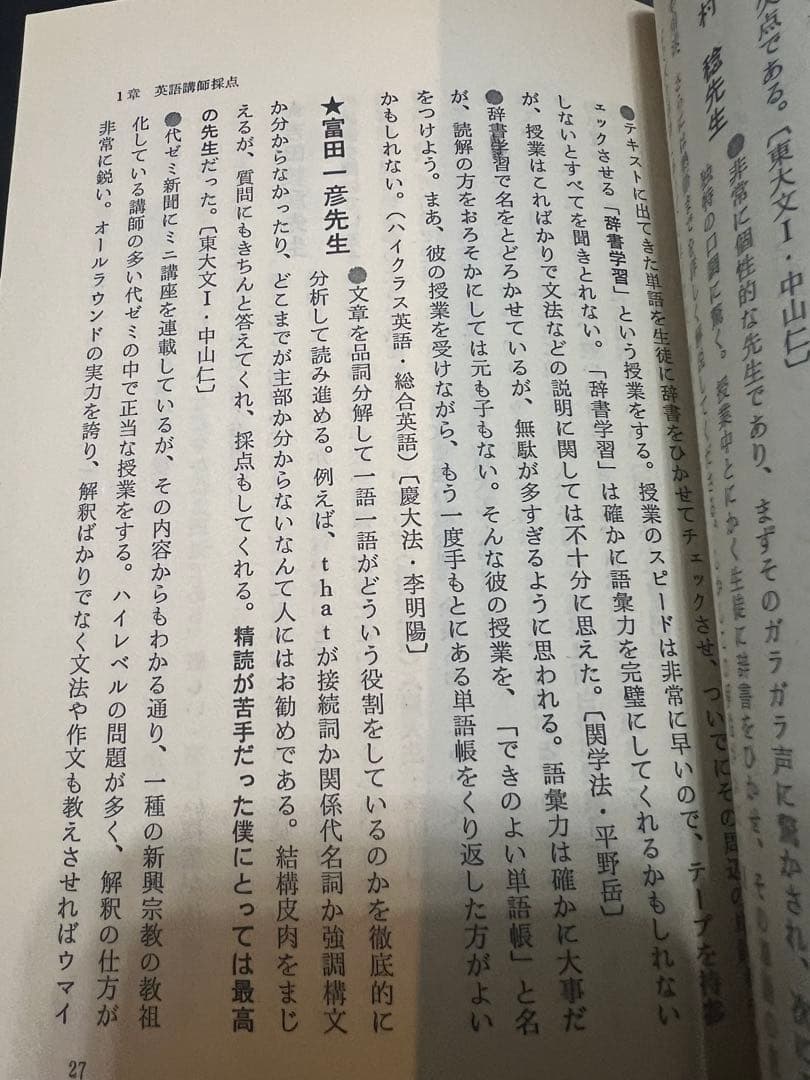 村 稔先生 ●非常に個性的な先生であり、まずそのガラガラ声に驚かされ、
独特の口調に驚く。授業中とにかく生徒に辞書をひかせ、その
笑点である。〔東大文Ⅰ・中山仁〕
1章 英語講師採点
●テキストに出てきた単語を生徒に辞書をひかせてチェックさせ、ついでにその周辺の
ェックさせる「辞書学習」という授業をする。授業のスピードは非常に早いので、テープを持参
しないとすべてを聞きとれない。「辞書学習」は確かに語彙力を完璧にしてくれるかもしれない
が、授業はこればかりで文法などの説明に関しては不十分に思えた。〔関学法・平野岳〕
●辞書学習で名をとどろかせているが、無駄が多すぎるように思われる。語彙力は確かに大事だ
が、読解の方をおろそかにしては元も子もない。そんな彼の授業を、「できのよい単語帳」と名
をつけよう。まあ、彼の授業を受けながら、もう一度手もとにある単語帳をくり返した方がよい
かもしれない。（ハイクラス英語・総合英語）〔慶大法・李明陽〕
★富田一彦先生 ●文章を品詞分解して一語一語がどういう役割をしているのかを徹底的に
分析して読み進める。例えば、thatが接続詞か関係代名詞か強調構文
か分からなかったり、どこまでが主部か分からないなんて人にはお勧めである。結構皮肉をまじ
えるが、質問にもきちんと答えてくれ、採点もしてくれる。精読が苦手だった僕にとっては最高
の先生だった。〔東大文Ⅰ・中山仁〕
●代ゼミ新聞にミニ講座を連載しているが、その内容からもわかる通り、一種の新興宗教の教祖
化している講師の多い代ゼミの中で正当な授業をする。ハイレベルの問題が多く、解釈の仕方が
非常に鋭い。オールラウンドの実力を誇り、解釈ばかりでなく文法や作文も教えさせればウマイ
27